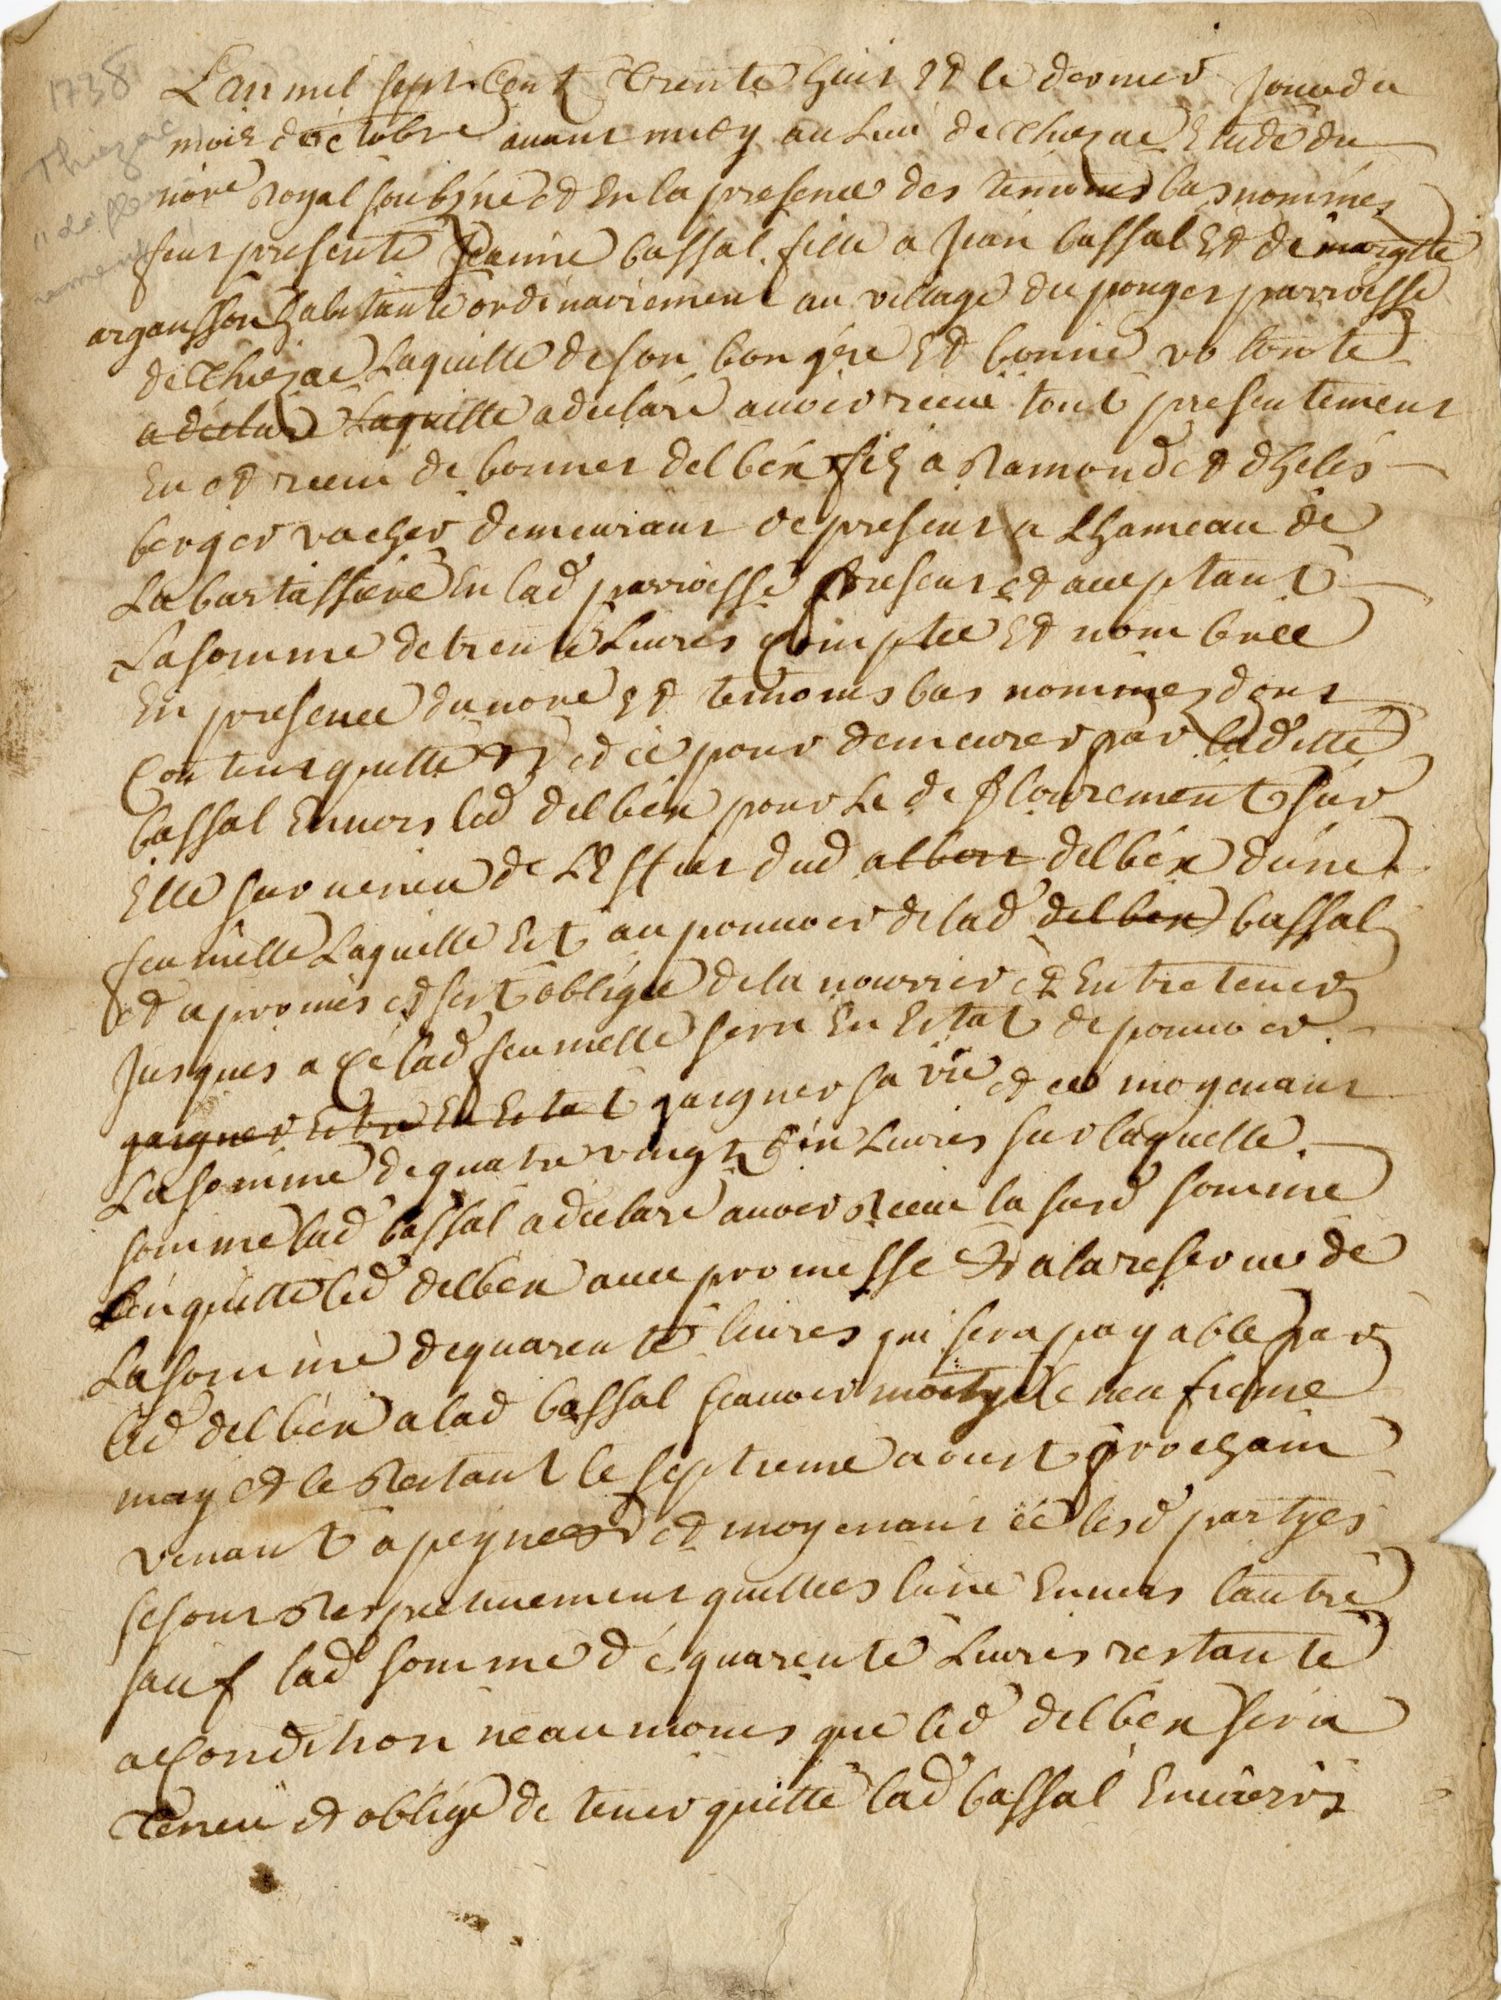 1738
Thiezac
L'an mil sept cent trente huit et le dernier jour du
mois d'octobre avant midy au lieu de Thiezac Etude du
nore Royal soubzné et En la presence des temoins bas nommés
feut presente Jeanne bassal fille a Jean bassal Et de margtte
argausson habitante ordinairement au village du pouget parroisse
de Thiezac Laquelle de son bon gére Et bonne volonte
a declare Laquelle a declaré avoir receu tout presentement
En et receu de bonnet delbex filz a Ramond et d'helis
berger vacher demeurant de present a Lhameau de
Labartassiere En lad parroisse present et aceptant
La somme de trente Livres Comptee Et nombree
En presence du nore et temoins bas nommes dont
Contens quitte et ce pour demeurer par laditte
bassal Envers led delbex pour Le deflourement sur
Elle survenu de L'Effet dud albert delbex d'une
feumelle Laquelle Est au pouvoir de lad delbex bassal
et a promis et s'est obligée de la nourrir et Entretenir
Jusques a Ce lad feumelle sera En Estat de pouvoir
gaigner Estre En Estat gaigner sa vie et ce moyenant
La somme de quatre vingt Livres sur laquelle
somme lad bassal a declaré avoir Receu la susd somme
En quitte led delbex avec promesse a la reserve de
La somme de quarente livres qui sera payable par
led delbex a lad bassal scavoir moityé le neufieme
may et le Restant le septieme aoust prochain
venant a peyne et moyenant ce lesd partyes
se sont Respectivement quittees lune Envers lautre
sauf lad somme de quarente Livres restante
a Condition neaumoins que led delbex sera
Teneu et obligé de tenir quitte lad bassal Envers